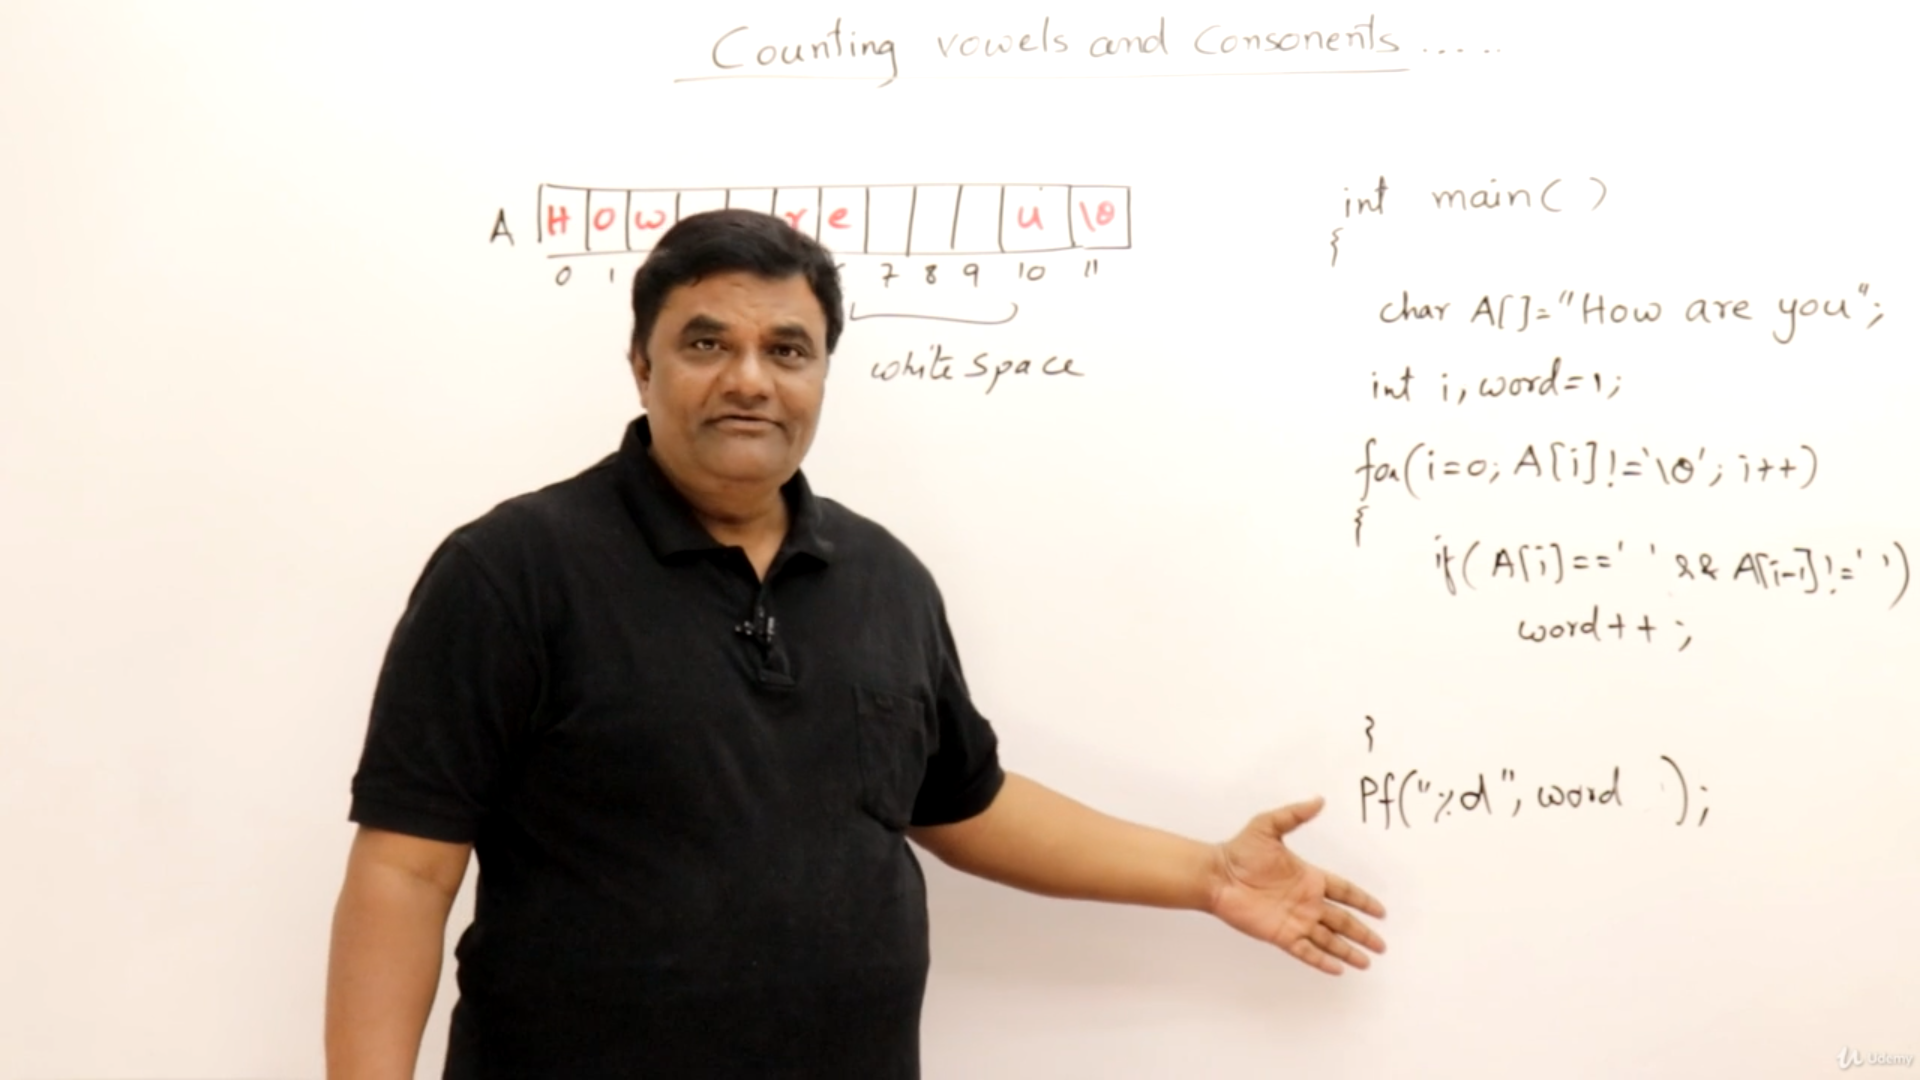 Counting vowels and Consonents .....
A H o w r e u \0
0 1 7 8 9 10 11
white space
int main( )
{
char A[]="How are you";
int i, word=1;
for(i=0; A[i]!='\0'; i++)
{
if( A[i]==' ' && A[i-1]!=' ')
word++ ;
}
Pf("%d", word );
Udemy